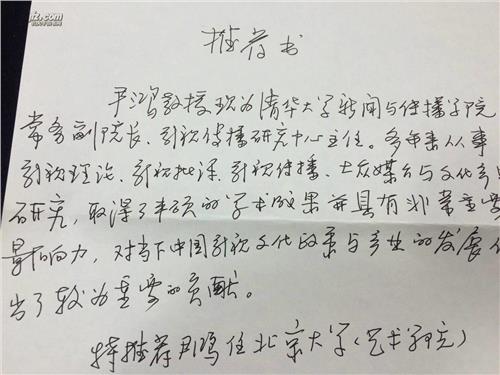 推荐书
尹鸿教授现为清华大学新闻与传播学院
常务副院长、影视传播研究中心主任。多年来从事
影视理论、影视批评、影视传播、大众媒介与文化产
研究，取得了丰硕的学术成果并具有非常重要
影响力，对当下中国影视文化政策与产业的发展
出了较为重要的贡献。
特推荐尹鸿任北京大学（艺术研究